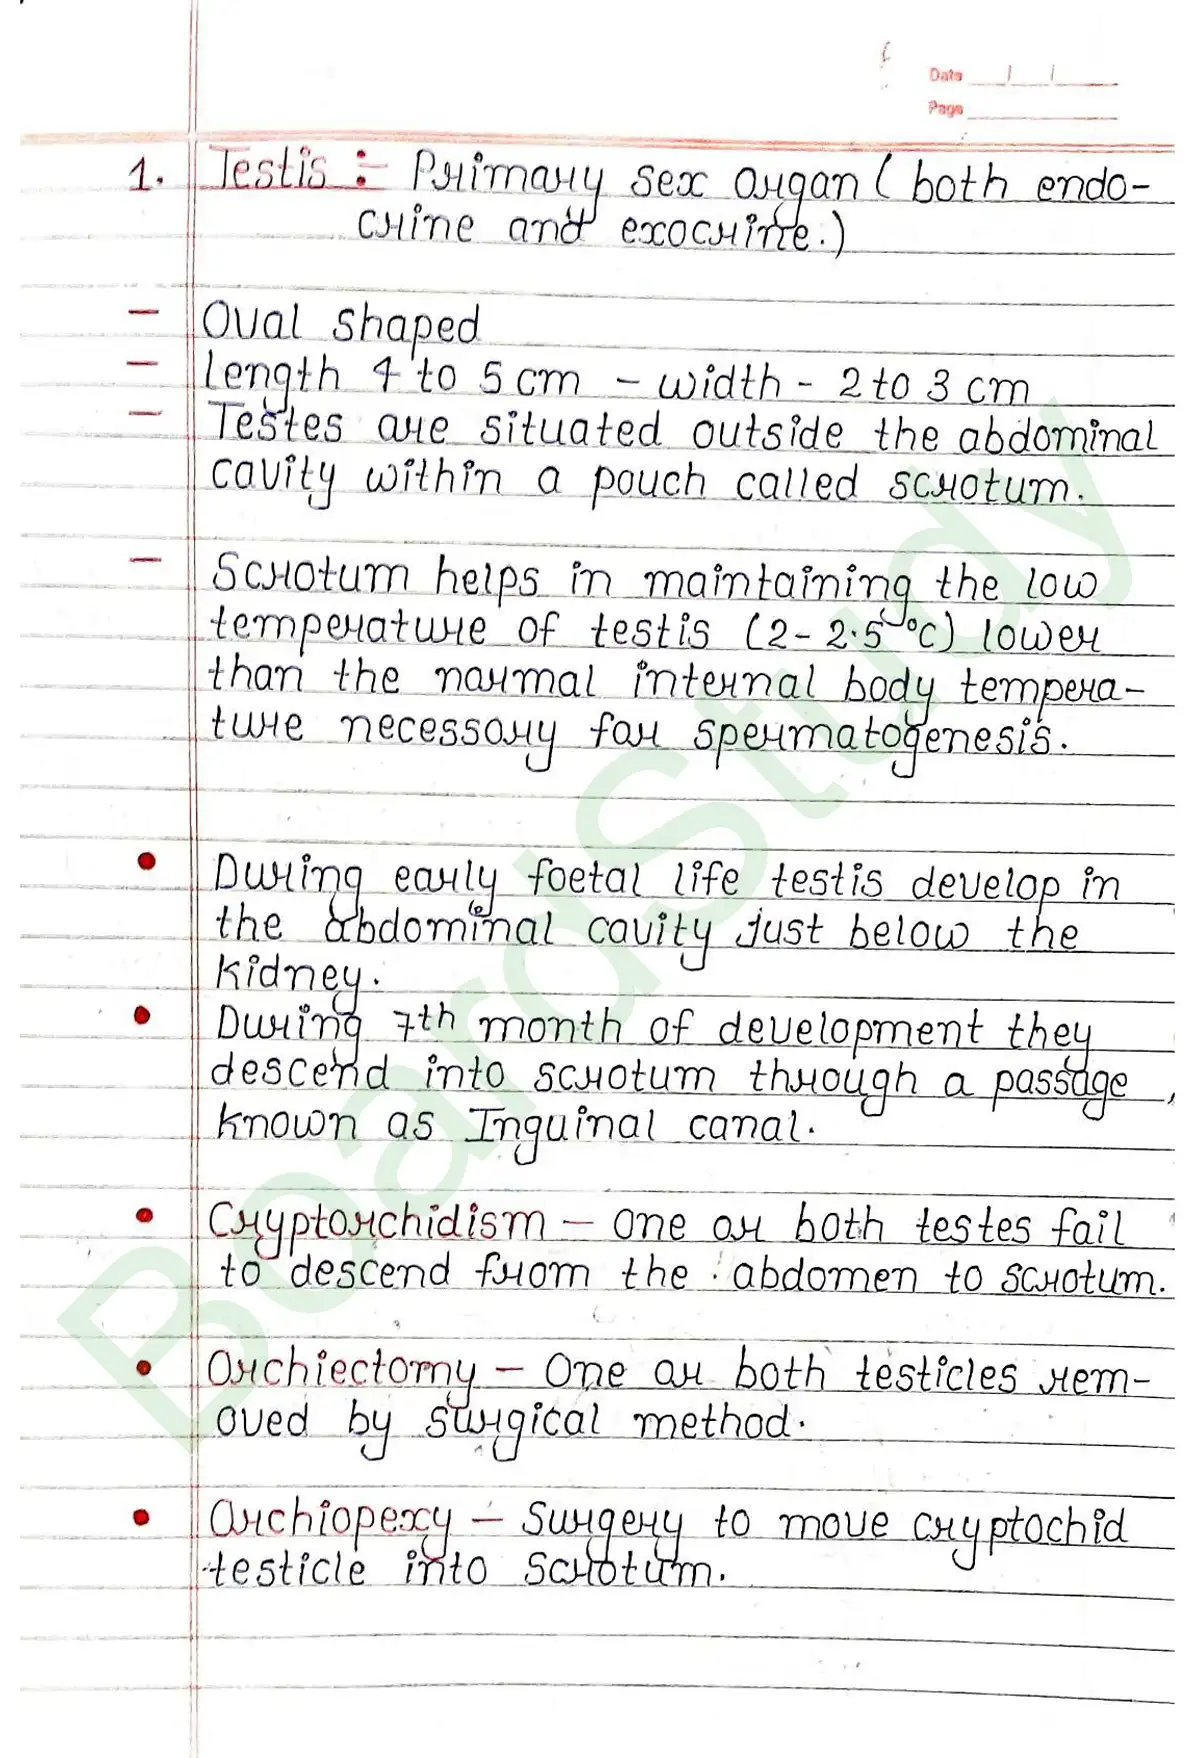 Date / /
Page
1. Testis :- Primary sex organ (both endo-
crine and exocrine.)
- Oval shaped
- Length 4 to 5 cm - width - 2 to 3 cm
- Testes are situated outside the abdominal
cavity within a pouch called scrotum.
- Scrotum helps in maintaining the low
temperature of testis (2-2.5 °C) lower
than the normal internal body tempera-
ture necessary for spermatogenesis.
• During early foetal life testis develop in
the abdominal cavity just below the
kidney.
• During 7th month of development they
descend into scrotum through a passage
known as Inguinal canal.
• Cryptorchidism - one or both testes fail
to descend from the abdomen to scrotum.
• Orchiectomy - One or both testicles rem-
oved by surgical method.
• Orchiopexy - Surgery to move cryptochid
testicle into scrotum.
BoardStudy